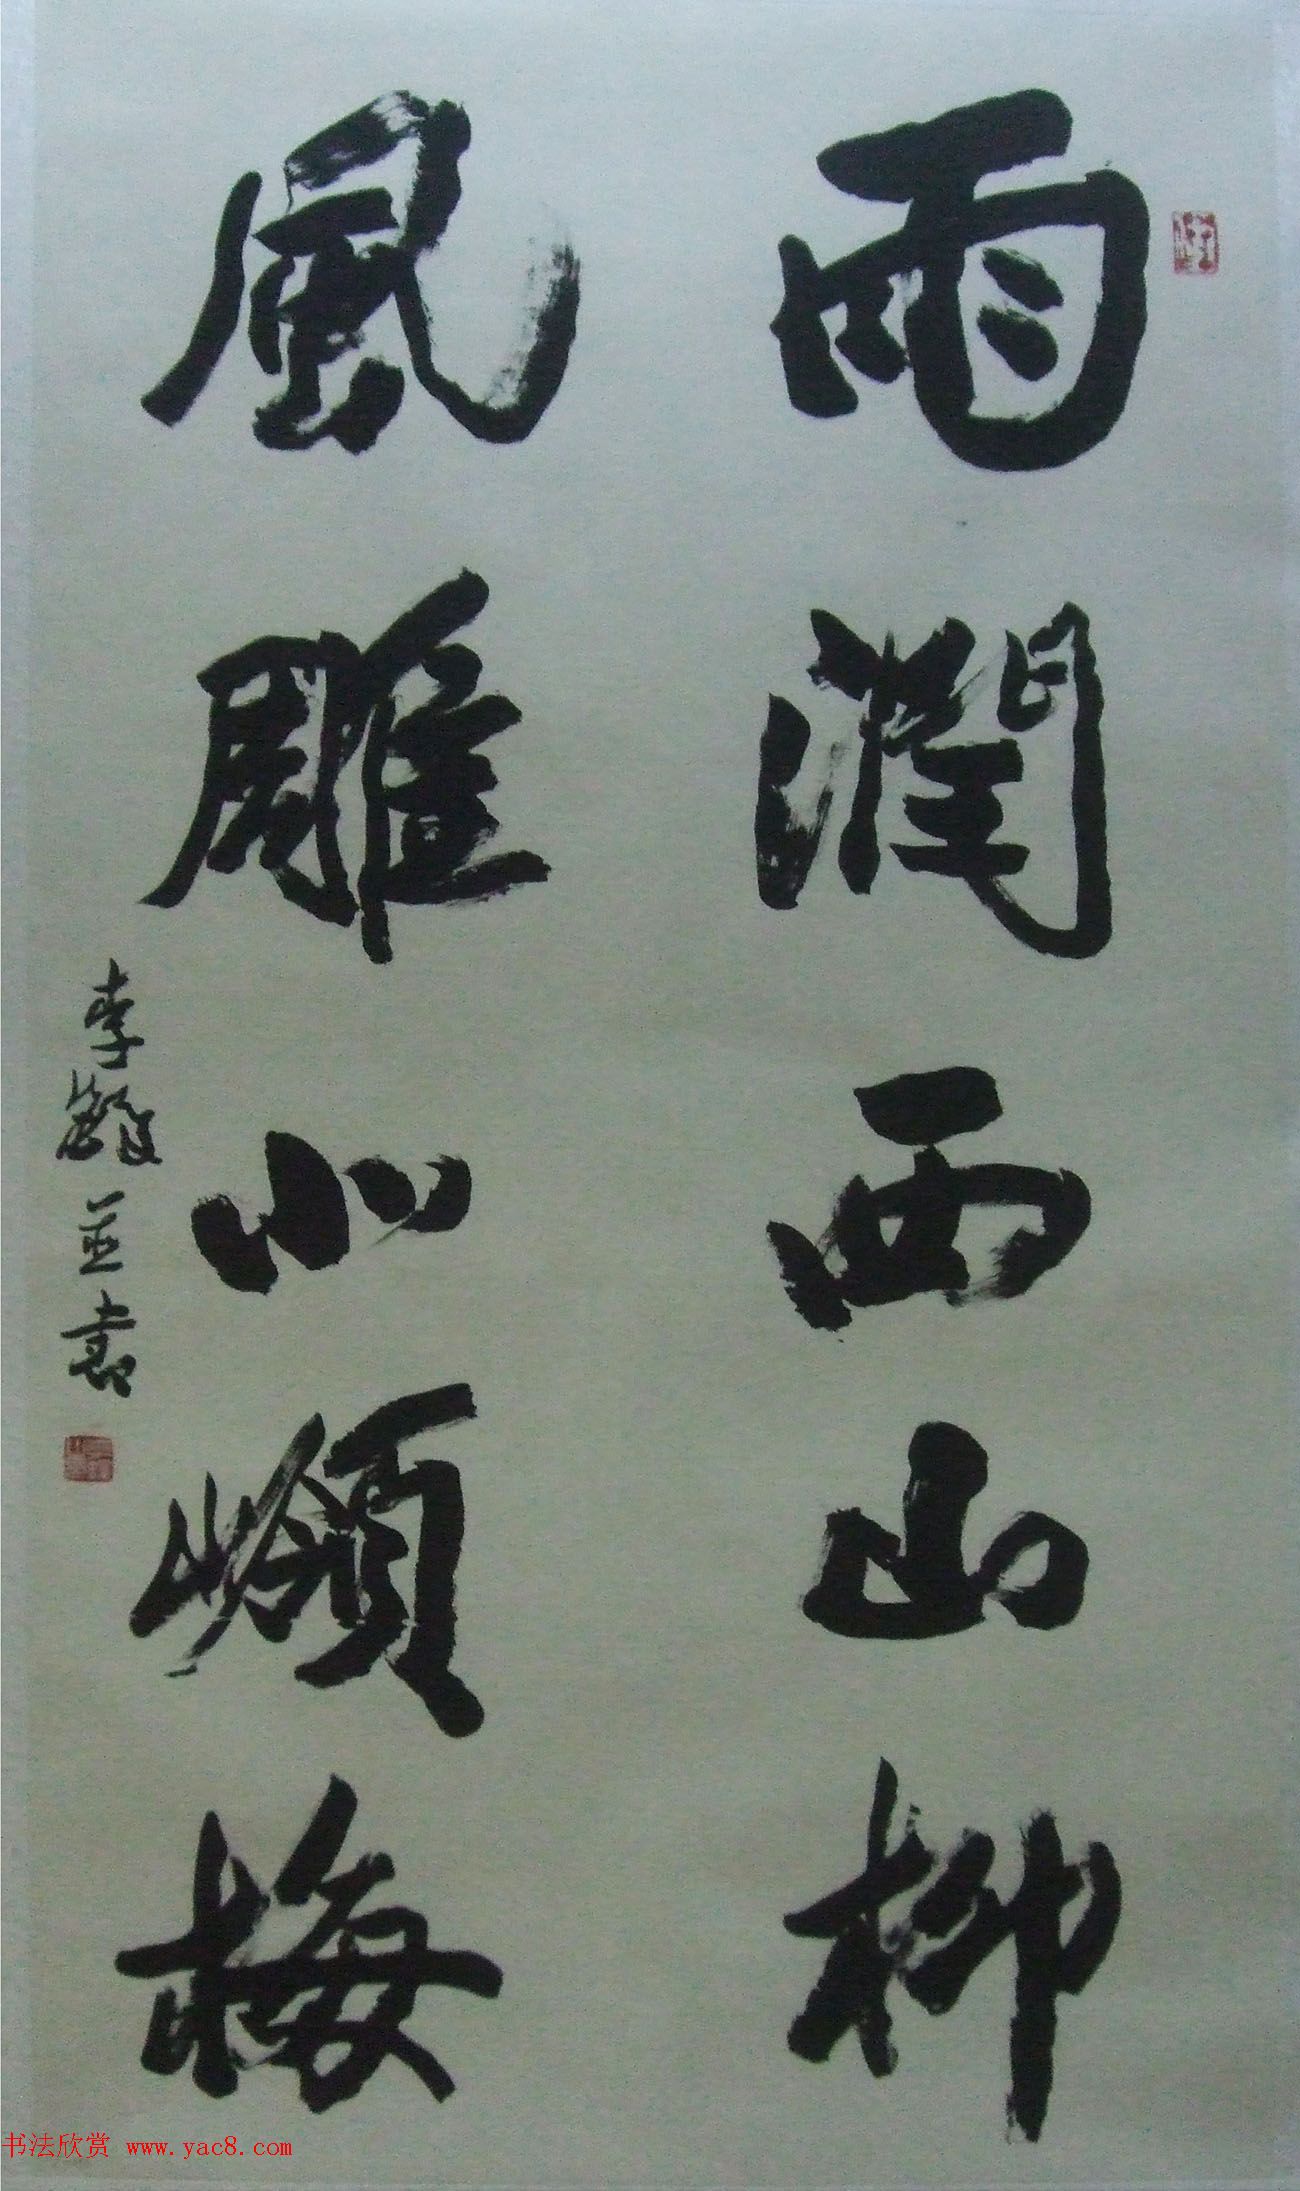 雨潤西山柳
風雕北嶺梅
李 並書
书法欣赏 www.yac8.com